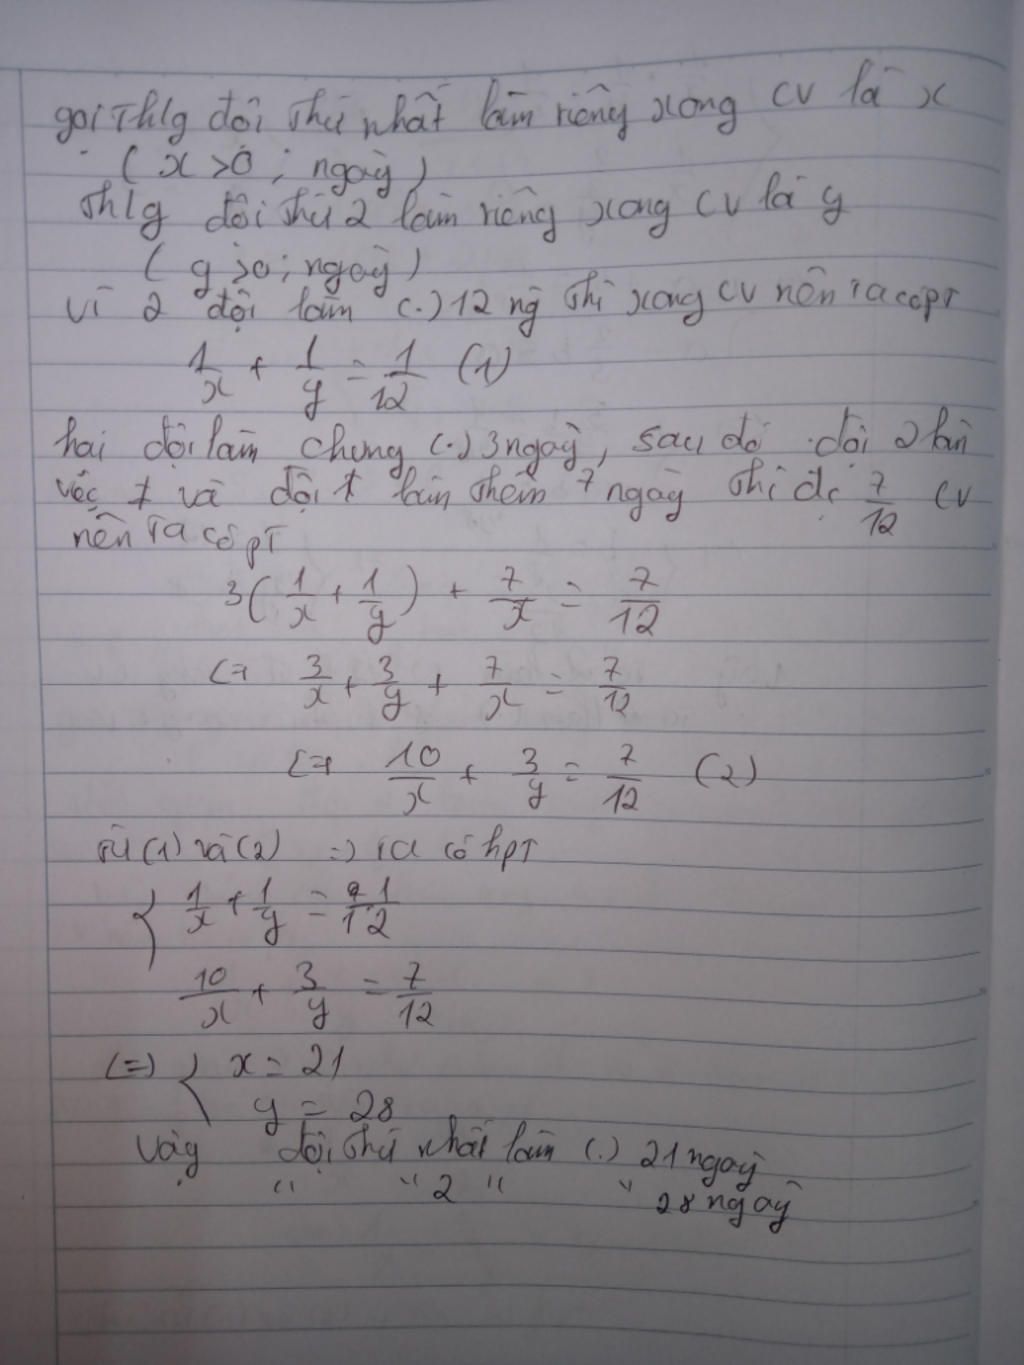 gọi Thlg đội thứ nhất làm riêng xong CV là x
( x >0 ; ngày )
Thlg đội thứ 2 làm riêng xong CV là y
( y >0 ; ngày )
Vì 2 đội làm (.) 12 ng thì xong CV nên ta có pT
1/x + 1/y = 1/12 (1)
hai đội làm chung (.) 3 ngày, sau đó đội 2 làm
việc ≠ và đội 1 làm thêm 7 ngày thì đc 7/12 CV
nên ta có pT
3( 1/x + 1/y ) + 7/x = 7/12
<=> 3/x + 3/y + 7/x = 7/12
<=> 10/x + 3/y = 7/12 (2)
từ (1) và (2) => ta có hpT
{ 1/x + 1/y = 1/12
10/x + 3/y = 7/12
(=) { x = 21
y = 28
Vậy đội thứ nhất làm (.) 21 ngày
" " 2 " " 28 ngày